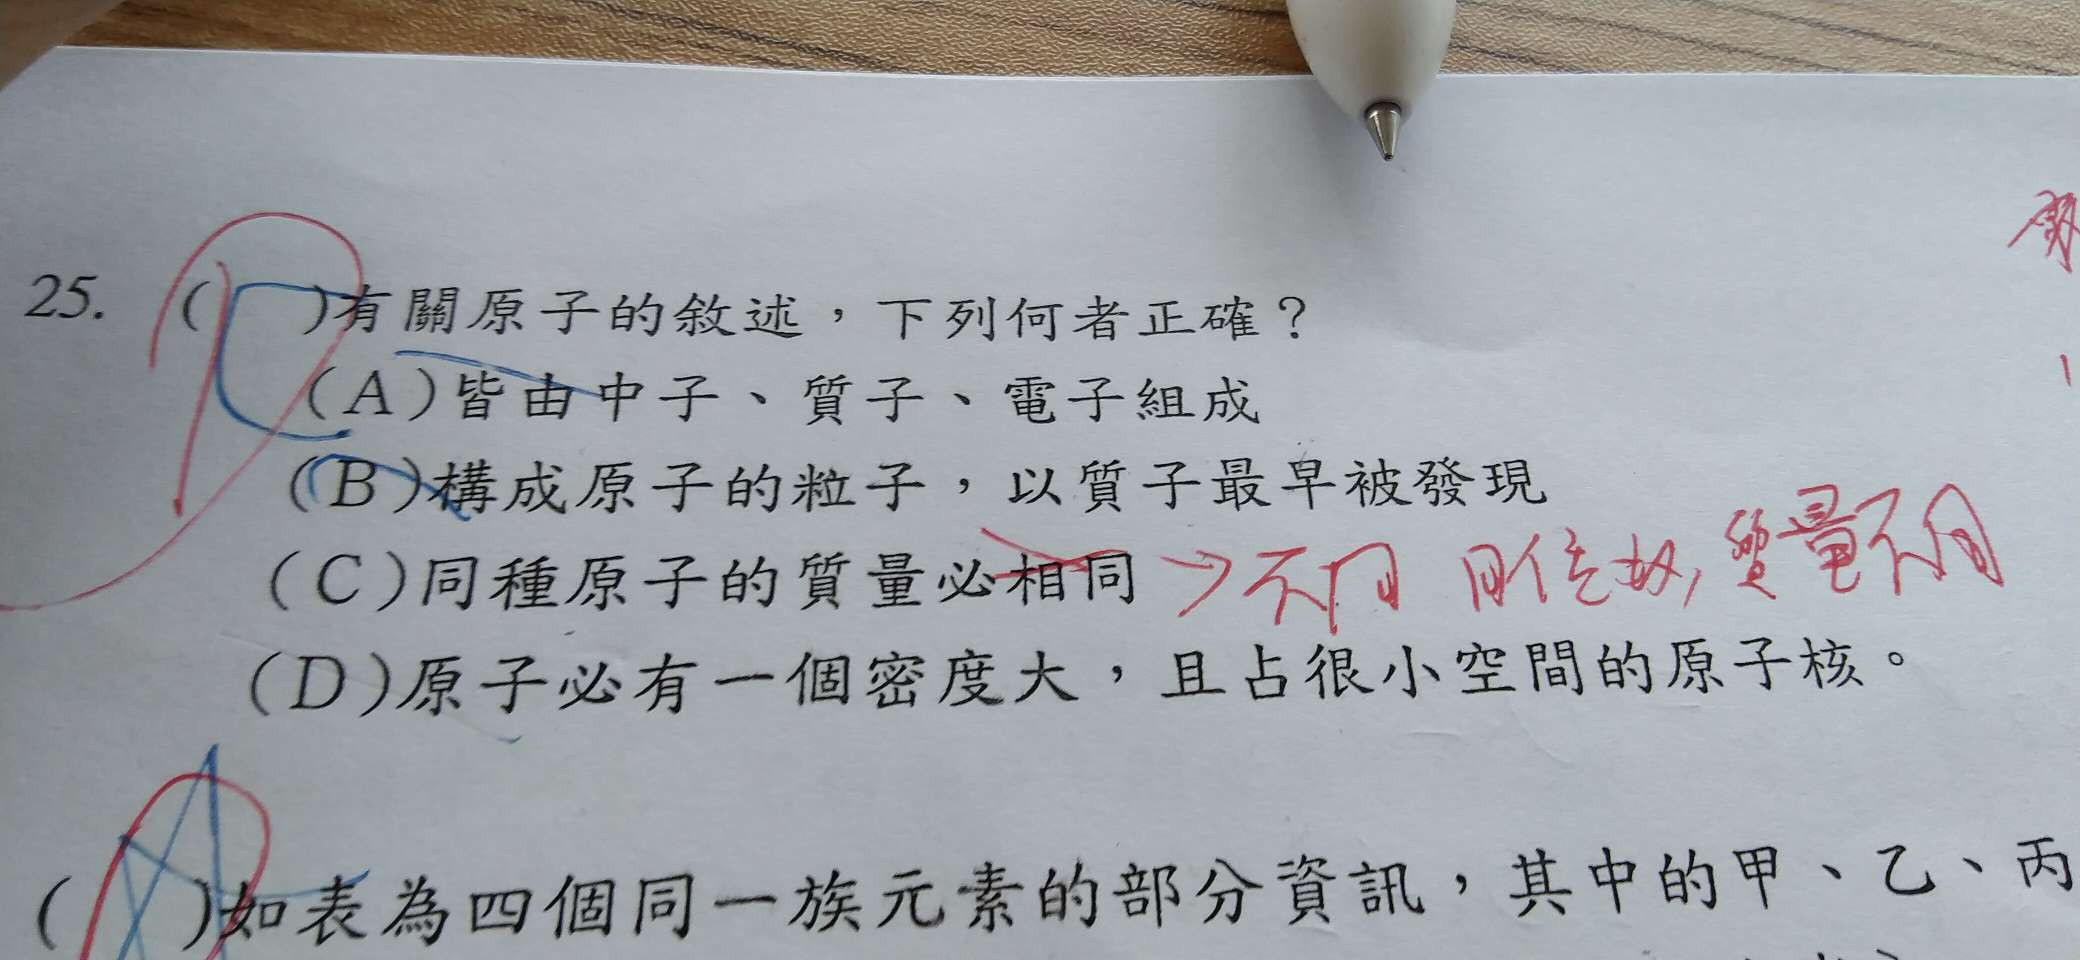 25. ( C )有關原子的敘述，下列何者正確？
(A)皆由中子、質子、電子組成
(B)構成原子的粒子，以質子最早被發現
(C)同種原子的質量必相同 → 不同 同位素，質量不同
(D)原子必有一個密度大，且占很小空間的原子核。
( A )如表為四個同一族元素的部分資訊，其中的甲、乙、丙